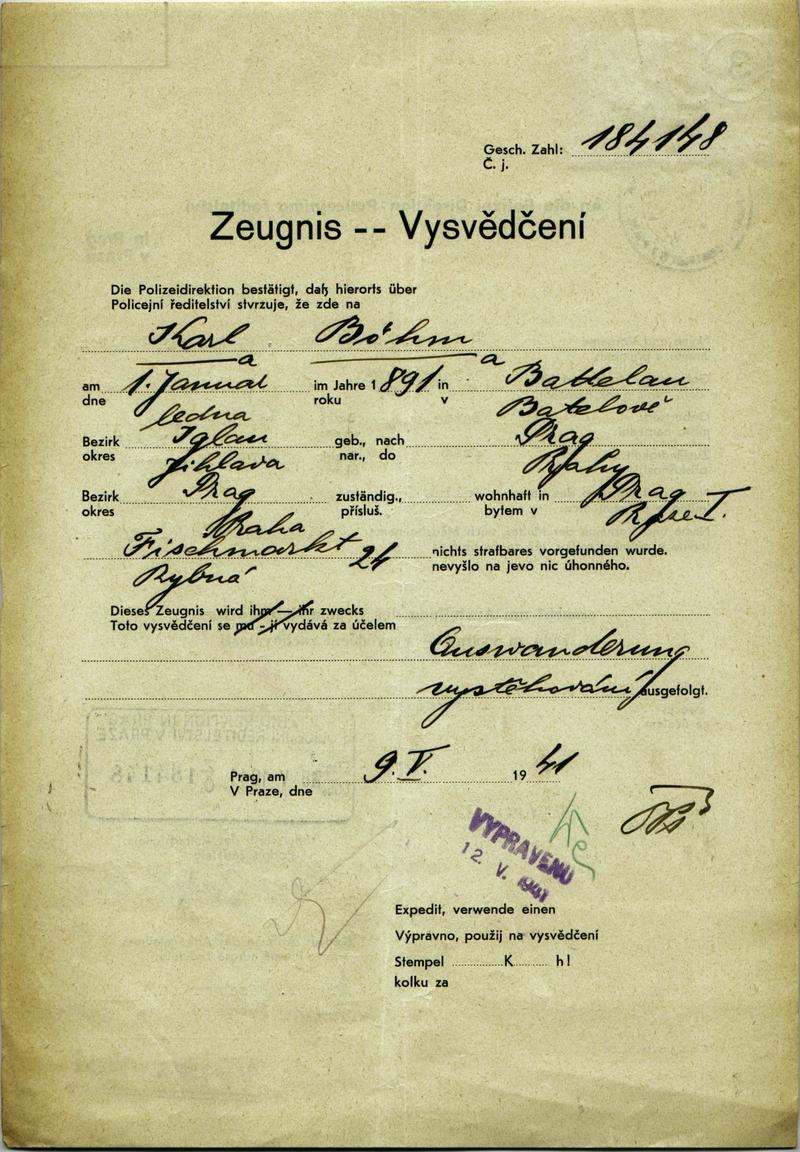 Gesch. Zahl: 184148
Č. j.
Zeugnis -- Vysvědčení
Die Polizeidirektion bestätigt, daß hierorts über
Policejní ředitelství stvrzuje, že zde na
Karl Böhm
a a
am 1. Januar im Jahre 1891 in Battelau
dne ledna roku v Batelově
Bezirk Iglau geb., nach Prag
okres Jihlava nar., do Prahy
Bezirk Prag zuständig., wohnhaft in Prag
okres Praha přísluš. bytem v Praze I.
Fischmarkt 24 nichts strafbares vorgefunden wurde.
Rybná nevyšlo na jevo nic úhonného.
Dieses Zeugnis wird ihm — ihr zwecks
Toto vysvědčení se mu - jí vydává za účelem
Auswanderung
vystěhování ausgefolgt.
Prag, am 9. V. 19 41
V Praze, dne
VYPRAVENO
12. V. 1941
Expedit, verwende einen
Výpravno, použij na vysvědčení
Stempel K h!
kolku za